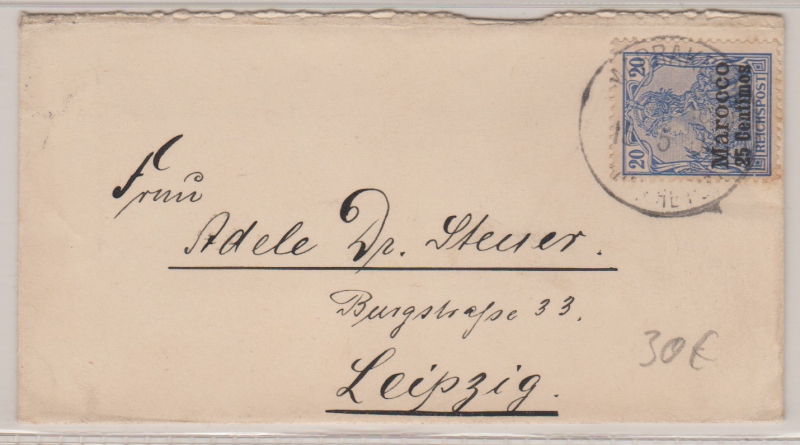 20 20
REICHSPOST
Marocco
25 Centimos
Frau
Adele Dr. Steuer.
Burgstraße 33.
Leipzig.
30€